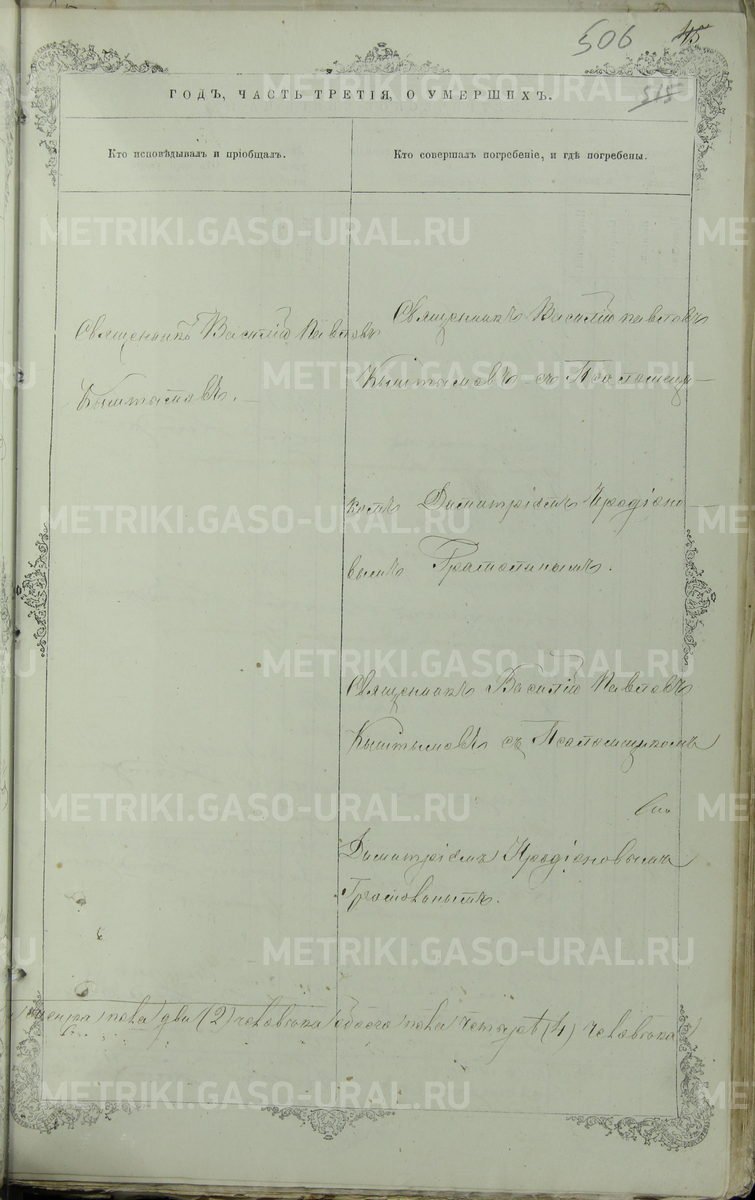 506 45
515
ГОДЪ, ЧАСТЬ ТРЕТІЯ, О УМЕРШИХЪ.
Кто исповѣдывалъ и пріобщалъ.
Кто совершалъ погребеніе, и гдѣ погребены.
METRIKI.GASO-URAL.RU
Священникъ Василій Павловъ
Кыштымовъ.
Священникъ Василій Павловъ
Кыштымовъ съ Псаломщи-
комъ Димитріемъ Иродіоно
вымъ
Священникъ Василій Павловъ
Кыштымовъ съ Псаломщикомъ
Димитріемъ Иродіоновымъ
пола два (2) человѣка обоего пола четыре (4) человѣка